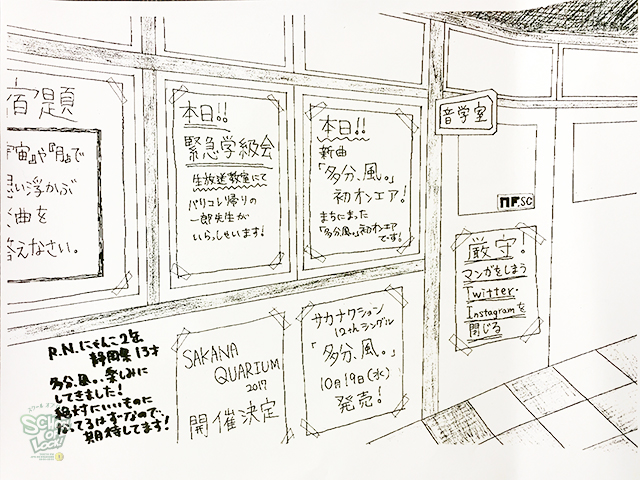 宿題
宇宙』や『月』で
思い浮かぶ
曲を
答えなさい。
本日!!
緊急学級会
生放送教室にて
パリコレ帰りの
一郎先生が
いらっしゃいます!
本日!!
新曲
「多分、風。」
初オンエア!
まちにまった
「多分風。」初オンエア
です!
音学室
NF SC
厳守!
マンガをしまう
Twitter・
Instagramを
閉じる
SAKANA
QUARIUM
2017
開催決定
サカナクション
12thシングル
「多分、風。」
10月19日(水)
発売!
R.N.にゃんこ2缶
静岡県 13才
多分、風。、楽しみに
してきました!
絶対にいいものに
なってるはずーなので、
期待してます!
SCHOOL
OF
LOCK!